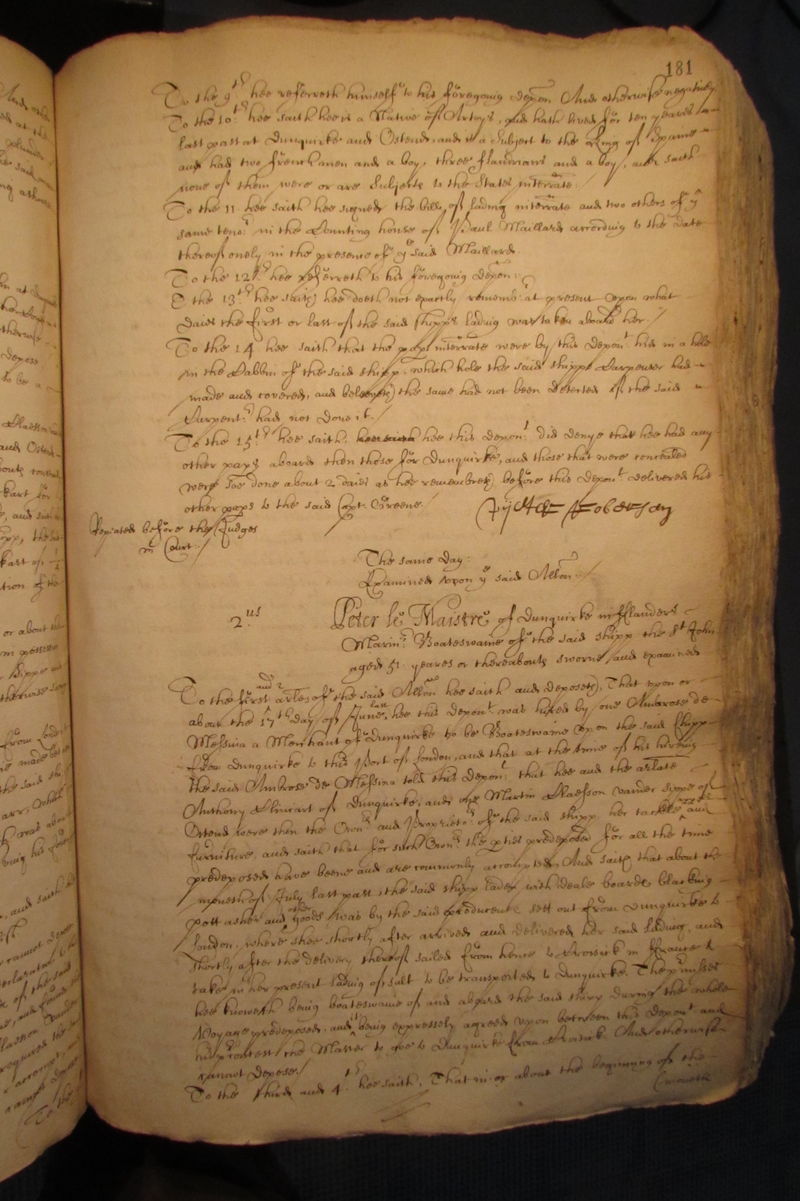 181
To the 9th hee referreth himself to his foregoeing depon And otherwise negatively
To the 10th hee saith hee is a Native of Artoys, and hath lived for ten yeares
last past at Dunquirke and Ostend, and is a Subject to the King of Spaine
and had two frenchmen and a boy, three fflandrians and a boy, and saith
none of them were or are Subjects to the States interrate:
To the 11 hee saith hee signed the bills of lading interrate and two others of ye
same tenor in the Counting house of Paul Maillard according to the date
thereof onely in the presence of ye said Maillard
To the 12th hee referreth to his foregoeing depon:
To the 13th hee saith hee doeth not exactly remember at present upon what
daies the first or last of the said shipps lading was taken aboard her./
To the 14 hee saith that the papers interrate were by this deponent hid in a hole
in the Cabbin of the said shipp, which hole the said shipps Carpenter had
made and covered, and beleeveth the same had not been detected if the said
Carpentr had not done it.
To the 15th hee saith hee this deponent did denye that hee had any
other papers aboard then those for Dunquirke, and those that were concealed
were soe done about 2 daies as hee remembreth before this deponent delivered his
other papers to the said Capt. Greene/
Repeated before the Judges
in Court./
The same day:
Examined upon ye said Allon./
2us
Peter le Maistre of Dunquirke in fflanders
Mariner Boateswaine of the said shipp the St John
aged 51 yeares or thereabouts sworne and examined
To the first and 2 arles of the said Allon hee saith and deposeth, That upon or
about the 17th day of June last hee this deponent was hired by one Ambrose de
Messina a Merchant of Dunquirke to be Boateswaine upon the said shipp
from Dunquirke to this Port of London, and that at the time of his hireing
the said Ambrose de Messina told this deponent that hee and the arlate
Anthony of Dunquirke, and one Martin Claesson vander of
Ostend were then the Owners and Proprietors of the said shipp her tackle and
furniture, and saith that for such Owners the parties predeposed for all the time
predeposed have beene and are commonly accompted, And saith that about the
moneth of July last past the said shipp laden with deale boards blacking
pott ashes and other goods was by the said producents sett out from Dunquirke to
London, where shee shortly after arrived and delivered her said lading, and
shortly after the delivery thereof sailed from hence to in ffrance to
take in her present lading of salt to be transported to Dunquirke. The premisses
hee knoweth being boateswaine of and aboard the said shipp during the whole
Voyage predeposed, and it being expressly agreed upon betweene this deponent and
his the Master to goe to Dunquirke from And otherwise
cannot depose./
To the third and 4th hee saith, That in or about the beginning of the
moneth